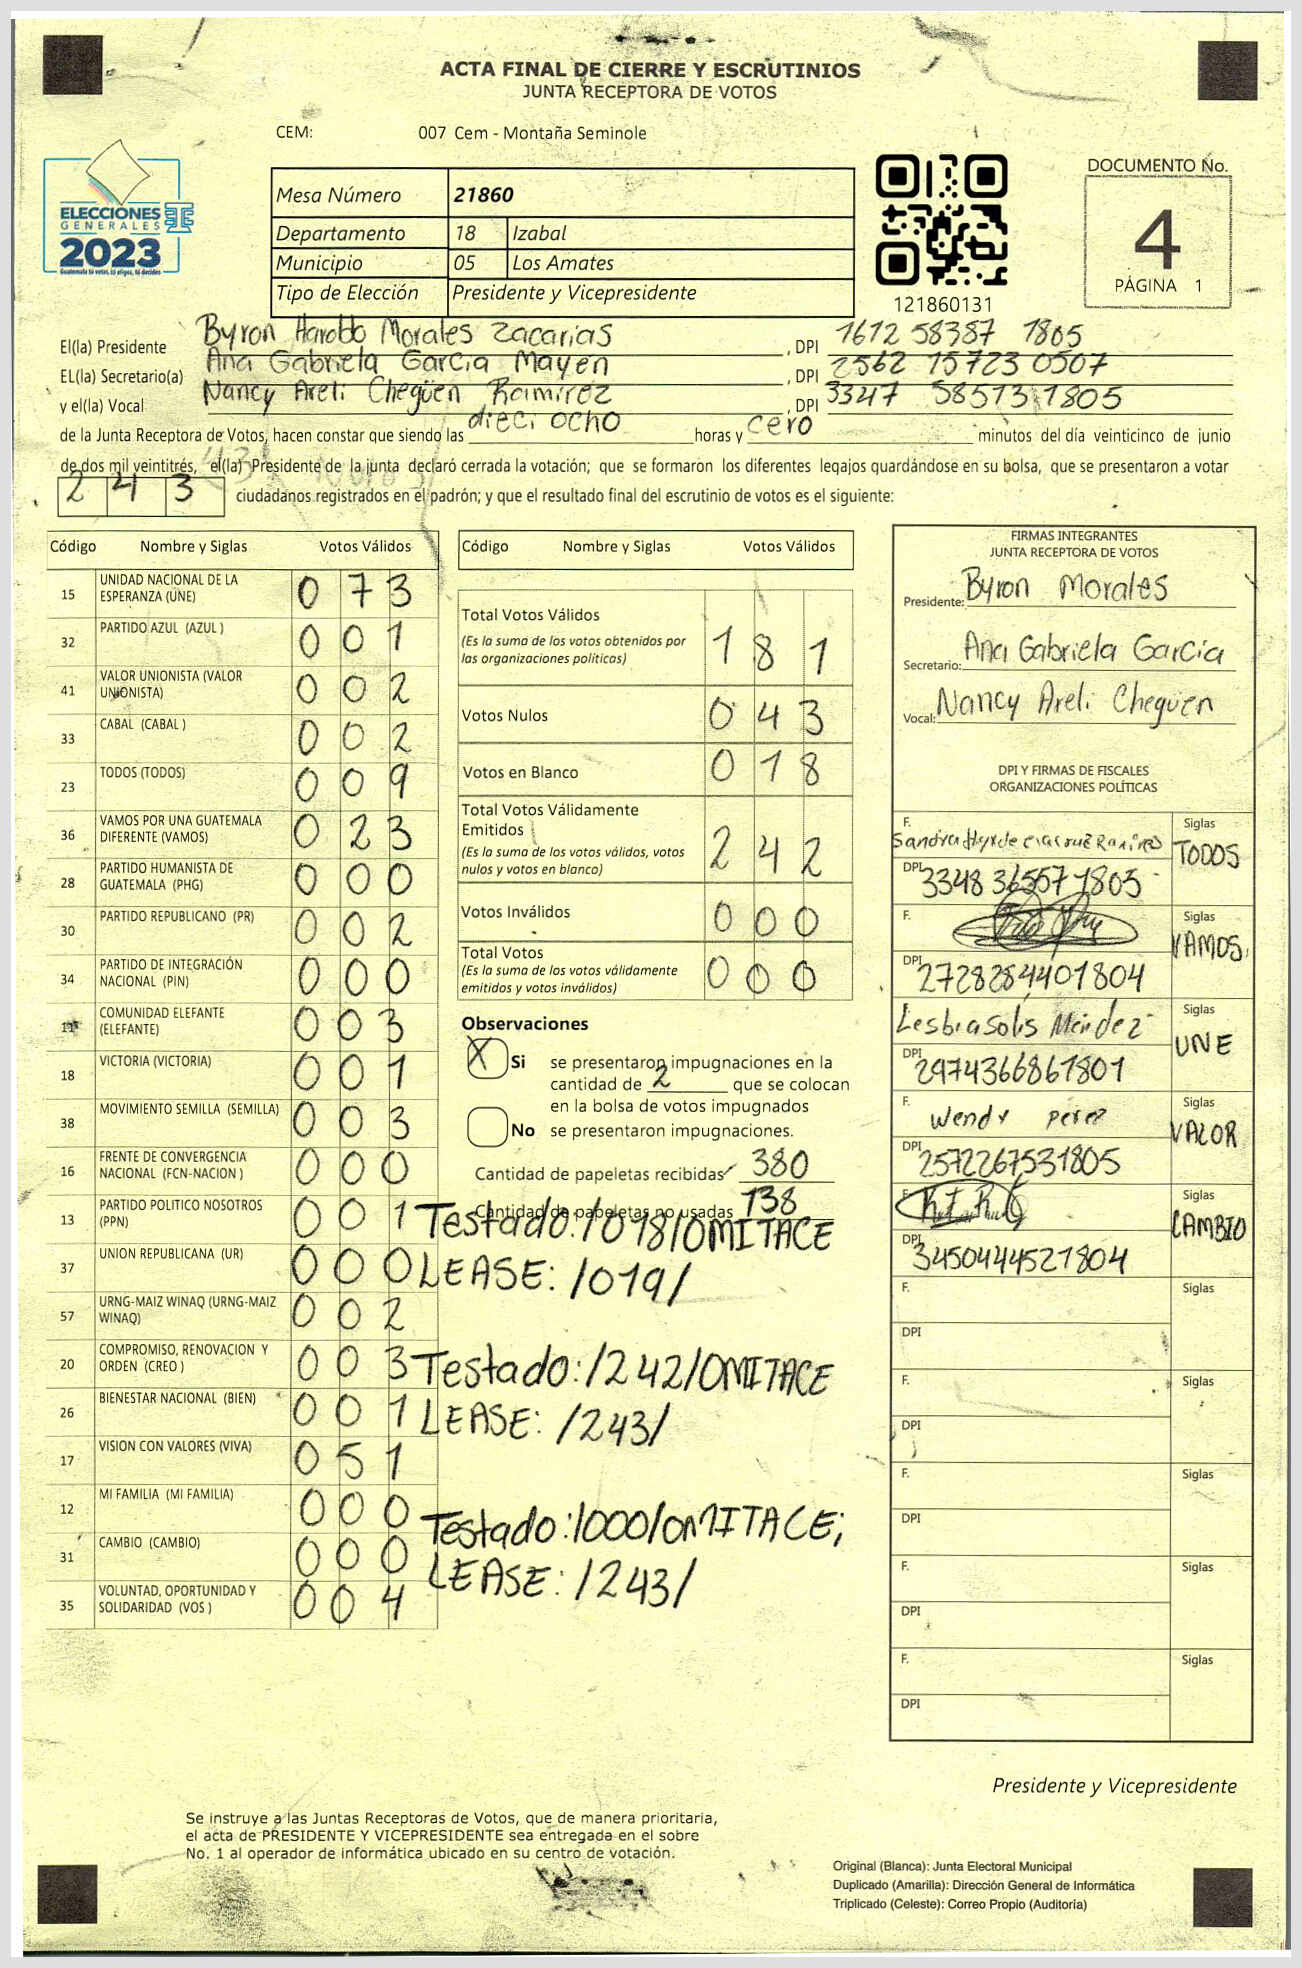 ACTA FINAL DE CIERRE Y ESCRUTINIOS
JUNTA RECEPTORA DE VOTOS
CEM: 007 Cem - Montaña Seminole
ELECCIONES
GENERALES
2023
Guatemala tú votas, tú eliges, tú decides
Mesa Número 21860
Departamento 18 Izabal
Municipio 05 Los Amates
Tipo de Elección Presidente y Vicepresidente
121860131
DOCUMENTO No.
4
PÁGINA 1
El(la) Presidente Byron Haroldo Morales Zacarias, DPI 1612 58387 1805
EL(la) Secretario(a) Ana Gabriela Garcia Mayen, DPI 2562 15723 0507
y el(la) Vocal Nancy Areli Chegüen Ramirez, DPI 3347 58513 1805
de la Junta Receptora de Votos, hacen constar que siendo las dieci ocho horas y cero minutos del día veinticinco de junio
de dos mil veintitrés, el(la) Presidente de la junta declaró cerrada la votación; que se formaron los diferentes legajos guardándose en su bolsa, que se presentaron a votar
2 4 3 ciudadanos registrados en el padrón; y que el resultado final del escrutinio de votos es el siguiente:
Código Nombre y Siglas Votos Válidos
15 UNIDAD NACIONAL DE LA ESPERANZA (UNE) 0 7 3
32 PARTIDO AZUL (AZUL ) 0 0 1
41 VALOR UNIONISTA (VALOR UNIONISTA) 0 0 2
33 CABAL (CABAL ) 0 0 2
23 TODOS (TODOS) 0 0 9
36 VAMOS POR UNA GUATEMALA DIFERENTE (VAMOS) 0 2 3
28 PARTIDO HUMANISTA DE GUATEMALA (PHG) 0 0 0
30 PARTIDO REPUBLICANO (PR) 0 0 2
34 PARTIDO DE INTEGRACIÓN NACIONAL (PIN) 0 0 0
11 COMUNIDAD ELEFANTE (ELEFANTE) 0 0 3
18 VICTORIA (VICTORIA) 0 0 1
38 MOVIMIENTO SEMILLA (SEMILLA) 0 0 3
16 FRENTE DE CONVERGENCIA NACIONAL (FCN-NACION ) 0 0 0
13 PARTIDO POLITICO NOSOTROS (PPN) 0 0 1
37 UNION REPUBLICANA (UR) 0 0 0
57 URNG-MAIZ WINAQ (URNG-MAIZ WINAQ) 0 0 2
20 COMPROMISO, RENOVACION Y ORDEN (CREO ) 0 0 3
26 BIENESTAR NACIONAL (BIEN) 0 0 1
17 VISION CON VALORES (VIVA) 0 5 1
12 MI FAMILIA (MI FAMILIA) 0 0 0
31 CAMBIO (CAMBIO) 0 0 0
35 VOLUNTAD, OPORTUNIDAD Y SOLIDARIDAD (VOS ) 0 0 4
Código Nombre y Siglas Votos Válidos
Total Votos Válidos
(Es la suma de los votos obtenidos por
las organizaciones políticas) 1 8 1
Votos Nulos 0 4 3
Votos en Blanco 0 1 8
Total Votos Válidamente
Emitidos
(Es la suma de los votos válidos, votos
nulos y votos en blanco) 2 4 2
Votos Inválidos 0 0 0
Total Votos
(Es la suma de los votos válidamente
emitidos y votos inválidos) 0 0 0
Observaciones
X Si se presentaron impugnaciones en la
cantidad de 2 que se colocan
en la bolsa de votos impugnados
No se presentaron impugnaciones.
Cantidad de papeletas recibidas 380
Cantidad de papeletas no usadas 138
Testado:/018/OMITACE
LEASE: /019/
Testado:/242/OMITACE
LEASE: /243/
Testado:/000/OMITACE;
LEASE: /243/
FIRMAS INTEGRANTES
JUNTA RECEPTORA DE VOTOS
Presidente: Byron Morales
Secretario: Ana Gabriela Garcia
Vocal: Nancy Areli Chegüen
DPI Y FIRMAS DE FISCALES
ORGANIZACIONES POLÍTICAS
F. Sandra Siglas TODOS
DPI 3348 36557 1805
F. Siglas VAMOS
DPI 2728284401804
F. Lesbia Solis Méndez Siglas UNE
DPI 2974366861801
F. Wendy Perez Siglas VALOR
DPI 2572267531805
F. Siglas CAMBIO
DPI 3450444521804
F. Siglas
DPI
F. Siglas
DPI
F. Siglas
DPI
F. Siglas
DPI
F. Siglas
DPI
Presidente y Vicepresidente
Se instruye a las Juntas Receptoras de Votos, que de manera prioritaria,
el acta de PRESIDENTE Y VICEPRESIDENTE sea entregada en el sobre
No. 1 al operador de informática ubicado en su centro de votación.
Original (Blanca): Junta Electoral Municipal
Duplicado (Amarilla): Dirección General de Informática
Triplicado (Celeste): Correo Propio (Auditoría)